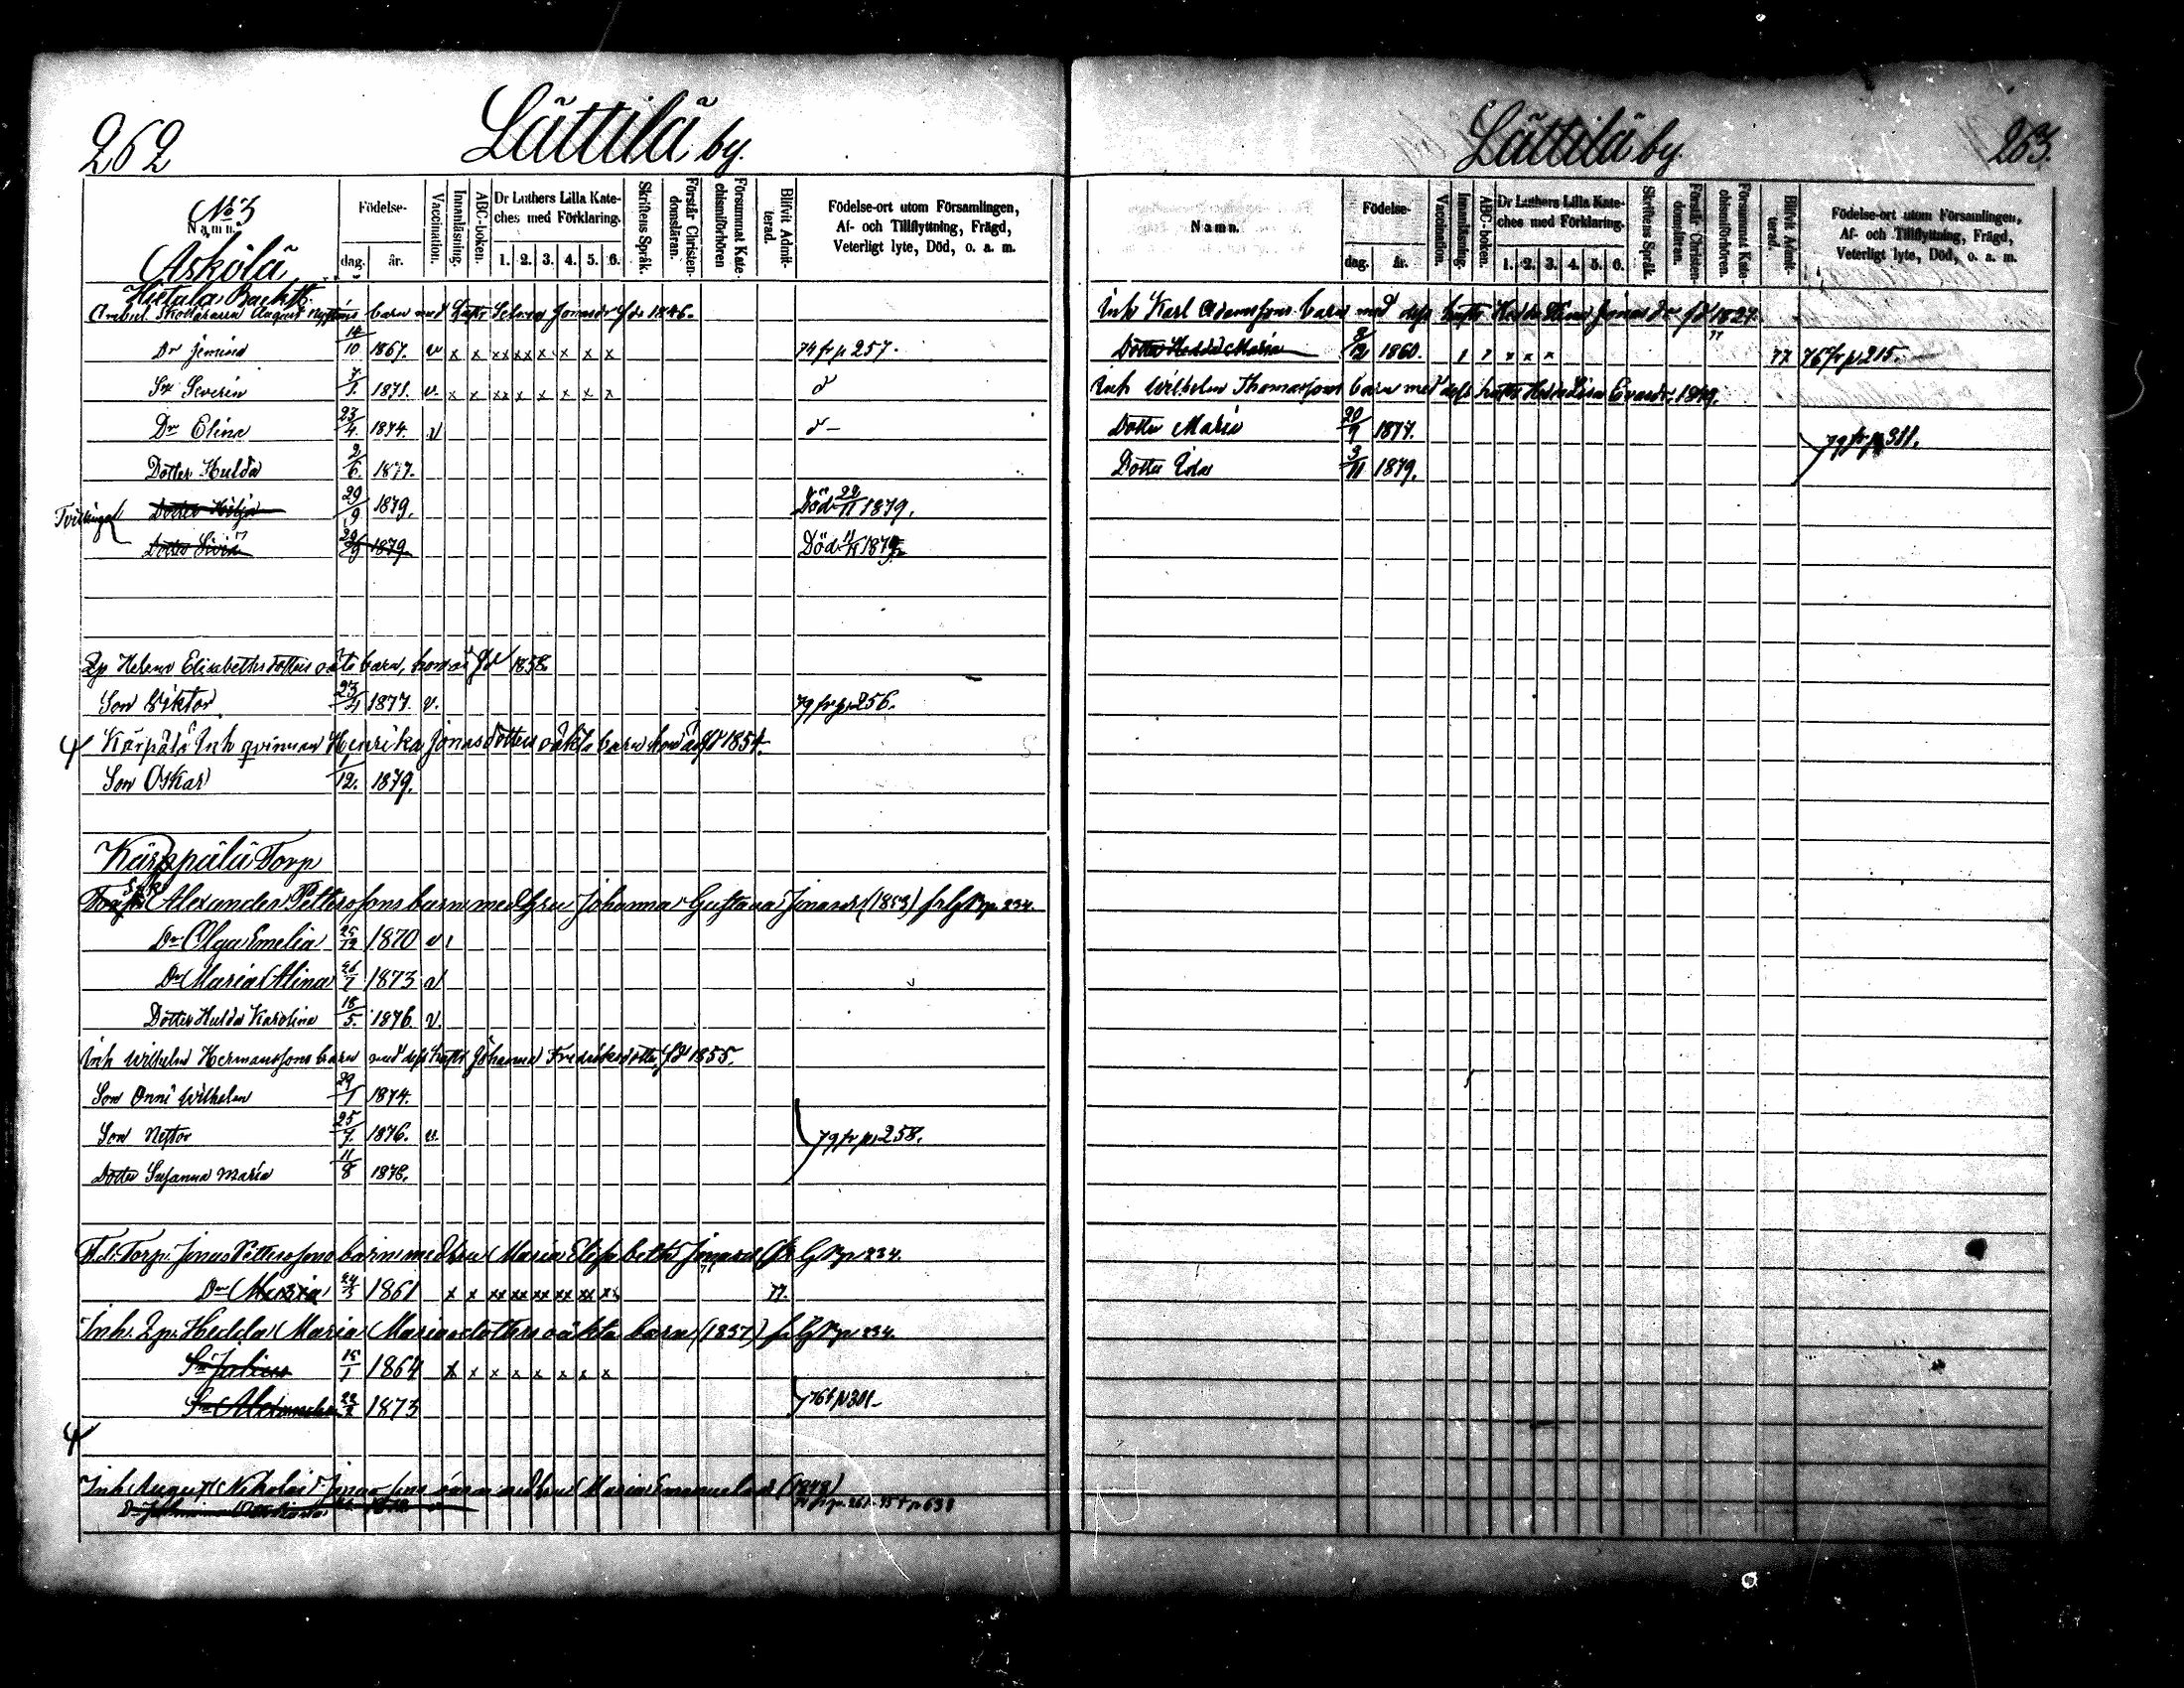 262
Lättilä by.
No 3
Namn.
Födelse-
dag. år.
Vaccination.
Innanläsning.
ABC-boken.
Dr Luthers Lilla Kate-
ches med Förklaring.
1. 2. 3. 4. 5. 6.
Skriftens Språk.
Förstår Christen-
domsläran.
Försummat Kate-
chismiförhören
Blifvit Admit-
terad.
Födelse-ort utom Församlingen,
Af- och Tillflyttning, Frägd,
Veterligt lyte, Död, o. a. m.
Askölä
Hietala Backst.
August barn med hustr Selma Jonasdr fdr 1846.
Dr Jemina 14/10 1867. v x x xx xx x x x x 74 fr p 257.
Sn Severin 7/1. 1871. v. x x xx x x x x x d
Dr Elina 23/4. 1874. v d –
Dotter Hulda 2/6. 1877.
Tvillingar Dotter Hilja 29/9 1879. Död 22/11 1879.
Dotter Siviä 29/9 1879 Död 11/11 1879.
Qp Helena Elisabethsdotters oäkta barn, hon är fd 1858.
Son Viktor 23/4 1877. v. 79 fr p 256.
Kärpälä Inh qvinnan Henrika Jonasdotters oäkta barn hon är fd 1854.
Son Oskar /12. 1879.
Kärppälä Torp
Alexander Pettersons barn med hu Johanna Gustava Jonasdr (1853) fr G B p. 234.
Dr Olga Emelia 25/12 1870 v 1
Dr Maria Alina 26/7 1873 v
Dotter Hulda Karolina 18/5. 1876. v.
Inh Wilhelm Hermanssons barn med dess hustr Johanna Fredriksdotter, fd 1855.
Son Onni Wilhelm 29/1 1874.
Son Nestor 25/7. 1876. v. 79 fr p 258.
Dotter Susanna Maria 11/8 1878.
F.d. Torp. Jonas Pettersons barn med hu Maria Elisabeth Jonasdr fr G B p 234.
Dr Maria 24/3 1861 x x xx xx xx xx xx xx 77.
Inh. Qp. Hedda Maria Mariasdotters oäkta barn (1837) fr G B p 234.
Sn Julius 15/1 1864 x x x x x x x x
Sn Alexander 22/2 1873 76 t p 301
Inh August Nikolai Jonassons barn med hu Maria Emanuelsdr (1848)
Dr Johanna
263.
Lättilä by.
Namn.
Födelse-
dag. år.
Vaccination.
Innanläsning.
ABC-boken.
Dr Luthers Lilla Kate-
ches med Förklaring.
1. 2. 3. 4. 5. 6.
Skriftens Språk.
Förstår Christen-
domsläran.
Försummat Kate-
chismiförhören.
Blifvit Admit-
terad.
Födelse-ort utom Församlingen,
Af- och Tillflyttning, Frägd,
Veterligt lyte, Död, o. a. m.
Inh Karl Adamssons barn med dess hustr Hedda Stina Jonasdr fd 1827.
Dotter Hedda Maria 9/12 1860. 77 76 fr p 215.
Inh Wilhelm Thomassons barn med dess hustr Hedda Lisa Evasdr. 1849.
Dotter Maria 20/9 1877. 79 fr p 311.
Dotter Ida 3/11 1879.